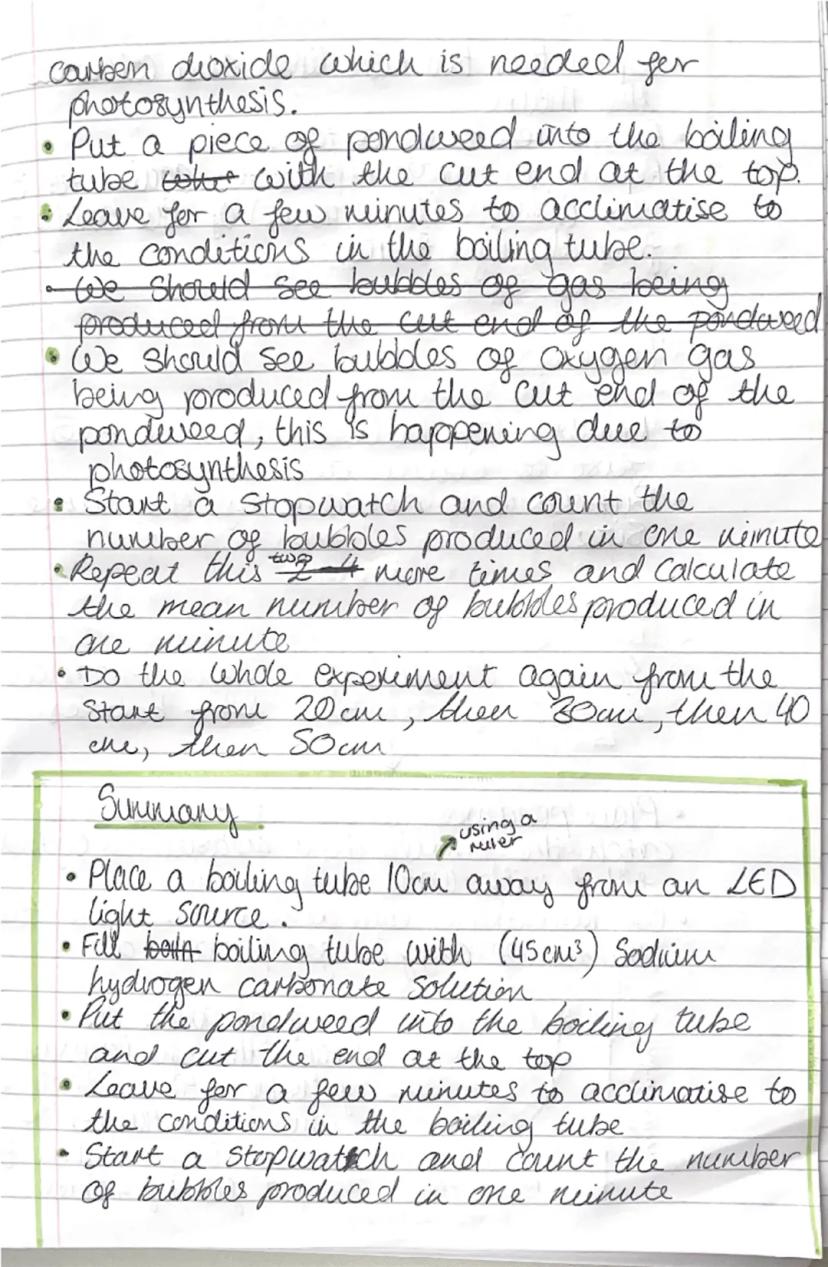 carbon dioxide which is needed for
photosynthesis.
• Put a piece of pondweed into the boiling
tube with the cut end at the top.
• Leave for a few minutes to acclimatise to
the conditions in the boiling tube.
• We should see bubbles of gas being
produced from the cut end of the pondweed
• We should see bubbles of oxygen gas
being produced from the cut end of the
pondweed, this is happening due to
photosynthesis
• Start a stopwatch and count the
number of bubbles produced in one minute
• Repeat this two 2-4 more times and calculate
the mean number of bubbles produced in
one minute
• Do the whole experiment again from the
start from 20cm, then 30cm, then 40
cm, then 50cm
Summary
using a
ruler
• Place a boiling tube 10cm away from an LED
light source.
• Fill boiling tube with (45cm³) Sodium
hydrogen carbonate solution
• Put the pondweed into the boiling tube
and cut the end at the top
• Leave for a few minutes to acclimatise to
the conditions in the boiling tube
• Start a stopwatch and count the number
of bubbles produced in one minute